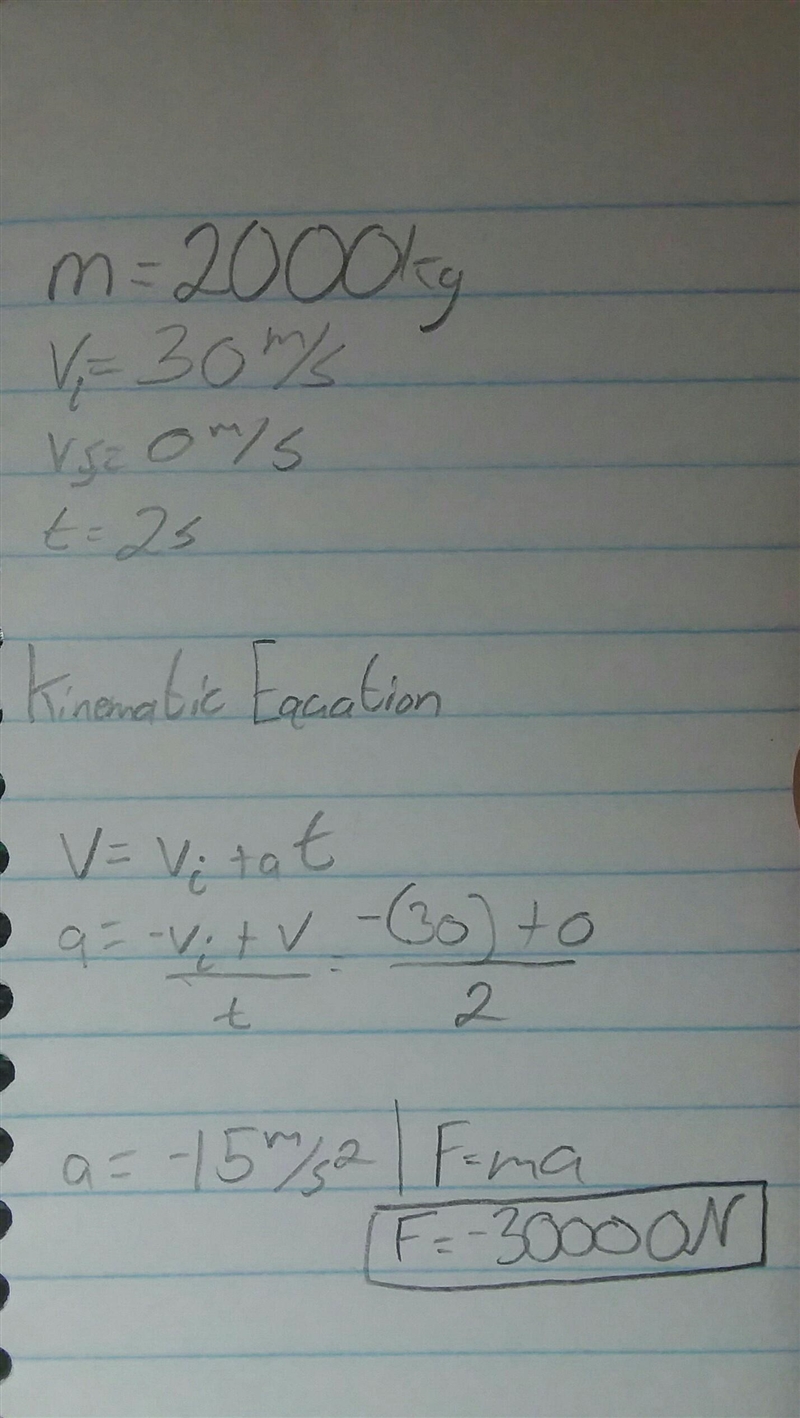 m = 2000kg
Vi = 30 m/s
Vf = 0 m/s
t = 2s
Kinematic Equation
V = Vi + at
a = -Vi + V / t = -(30) + 0 / 2
a = -15 m/s2 | F = ma
F = -30000N